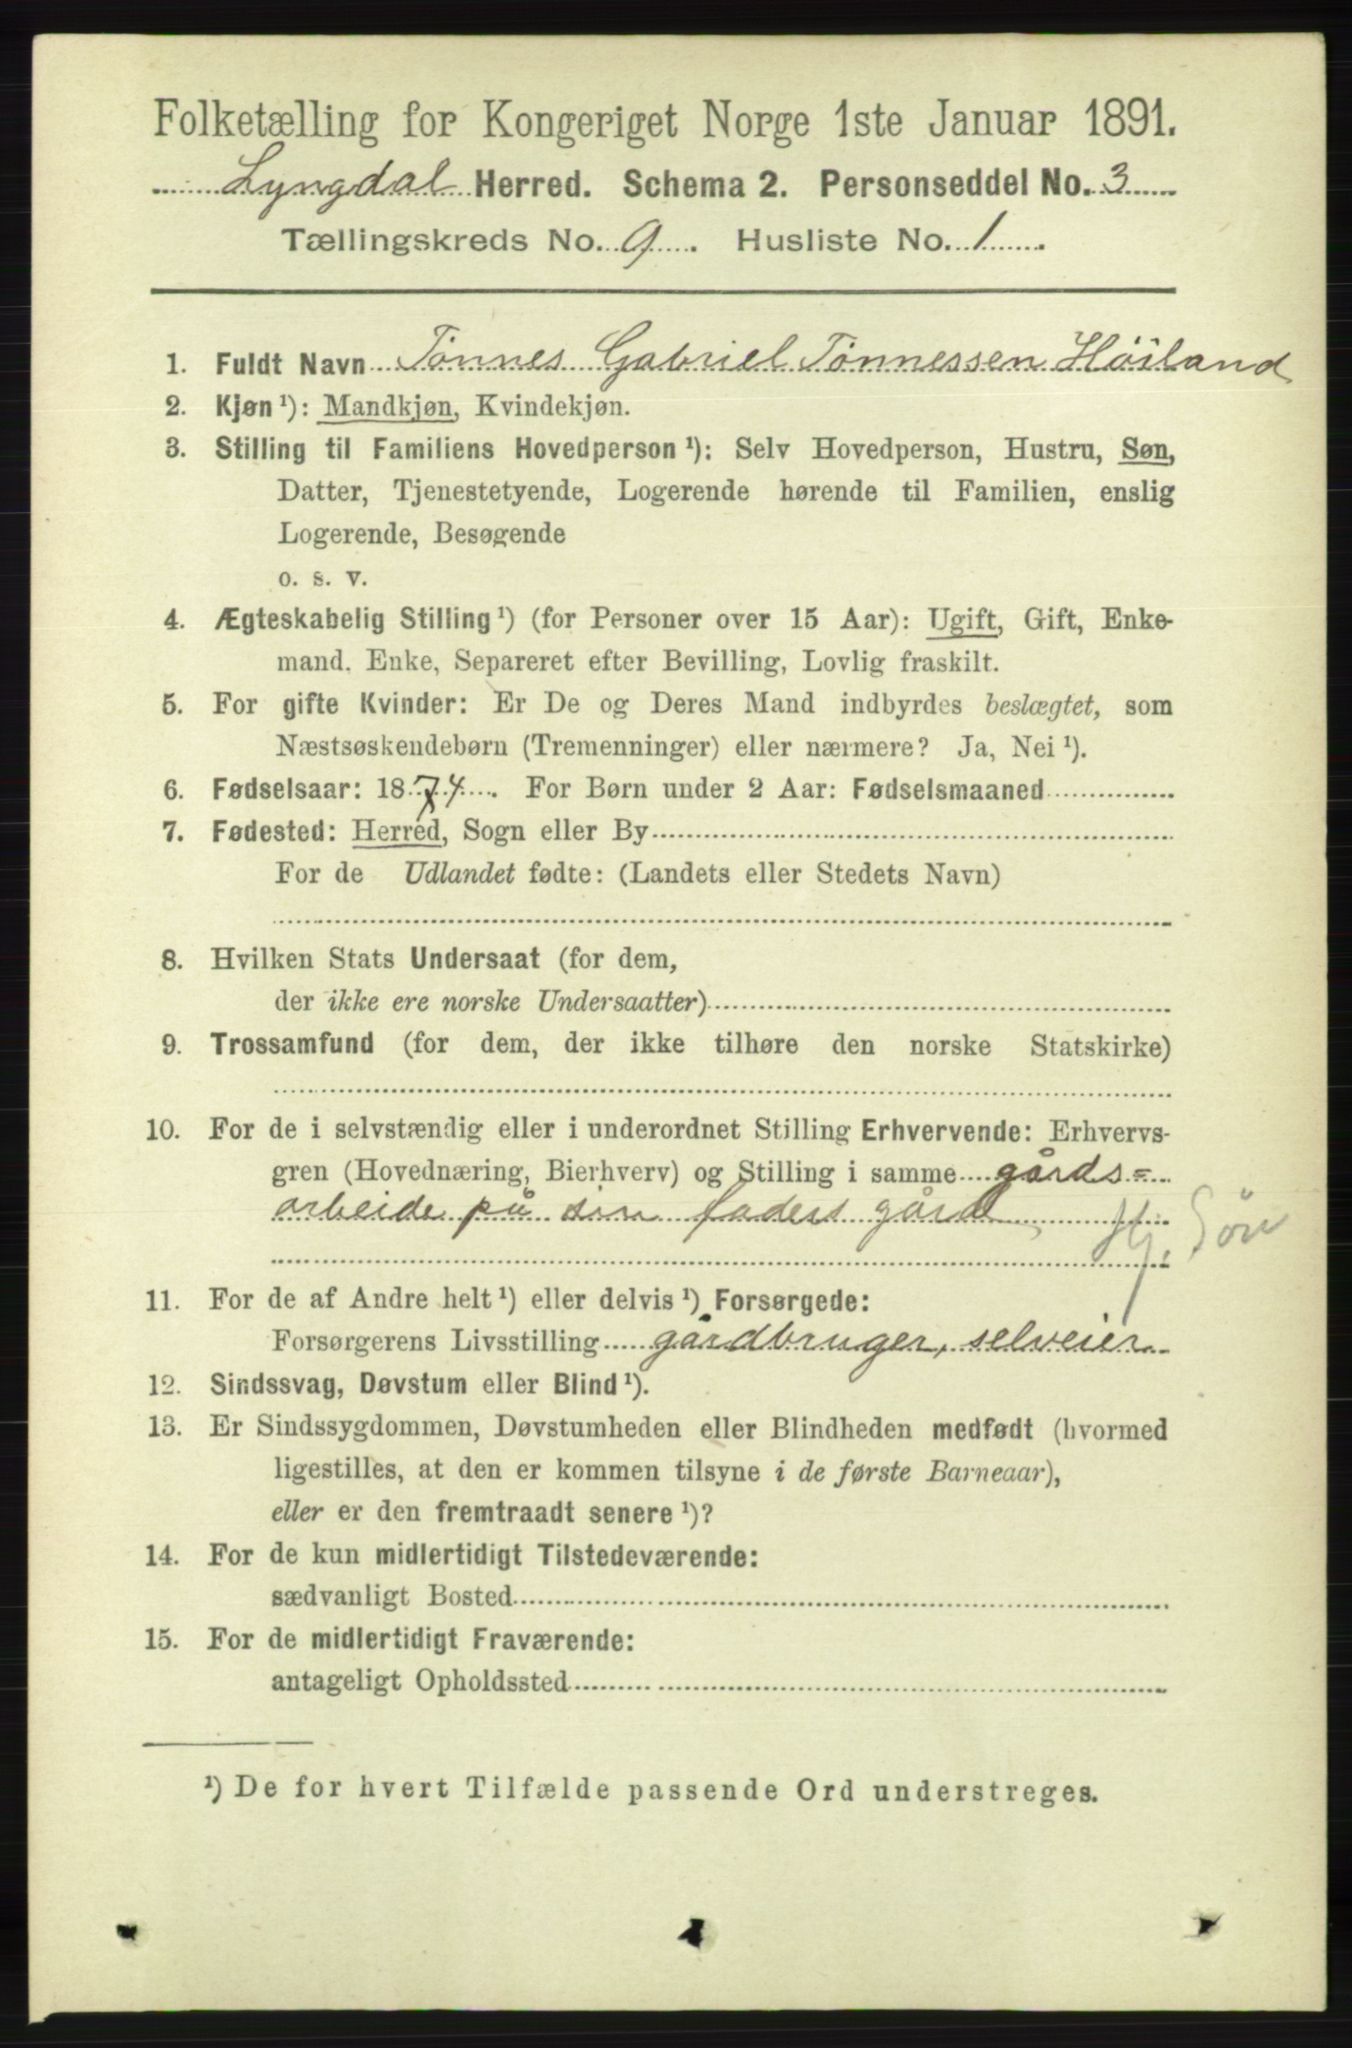 Folketælling for Kongeriget Norge 1ste Januar 1891.
Lyngdal Herred. Schema 2. Personseddel No. 3
Tællingskreds No. 9. Husliste No. 1.
1. Fuldt Navn Tønnes Gabriel Tønnessen Höiland
2. Kjøn ¹): Mandkjøn, Kvindekjøn.
3. Stilling til Familiens Hovedperson ¹): Selv Hovedperson, Hustru, Søn,
Datter, Tjenestetyende, Logerende hørende til Familien, enslig
Logerende, Besøgende
o. s. v.
4. Ægteskabelig Stilling ¹) (for Personer over 15 Aar): Ugift, Gift, Enke-
mand, Enke, Separeret efter Bevilling, Lovlig fraskilt.
5. For gifte Kvinder: Er De og Deres Mand indbyrdes beslægtet, som
Næstsøskendebørn (Tremenninger) eller nærmere? Ja, Nei ¹).
6. Fødselsaar: 1874. For Børn under 2 Aar: Fødselsmaaned
7. Fødested: Herred, Sogn eller By
For de Udlandet fødte: (Landets eller Stedets Navn)
8. Hvilken Stats Undersaat (for dem,
der ikke ere norske Undersaatter)
9. Trossamfund (for dem, der ikke tilhøre den norske Statskirke)
10. For de i selvstændig eller i underordnet Stilling Erhvervende: Erhvervs-
gren (Hovednæring, Bierhverv) og Stilling i samme gårds=
arbeide på sin faders gård
Hj. Sön
11. For de af Andre helt ¹) eller delvis ¹) Forsørgede:
Forsørgerens Livsstilling gårdbruger, selveier
12. Sindssvag, Døvstum eller Blind ¹).
13. Er Sindssygdommen, Døvstumheden eller Blindheden medfødt (hvormed
ligestilles, at den er kommen tilsyne i de første Barneaar),
eller er den fremtraadt senere ¹)?
14. For de kun midlertidigt Tilstedeværende:
sædvanligt Bosted
15. For de midlertidigt Fraværende:
antageligt Opholdssted
¹) De for hvert Tilfælde passende Ord understreges.